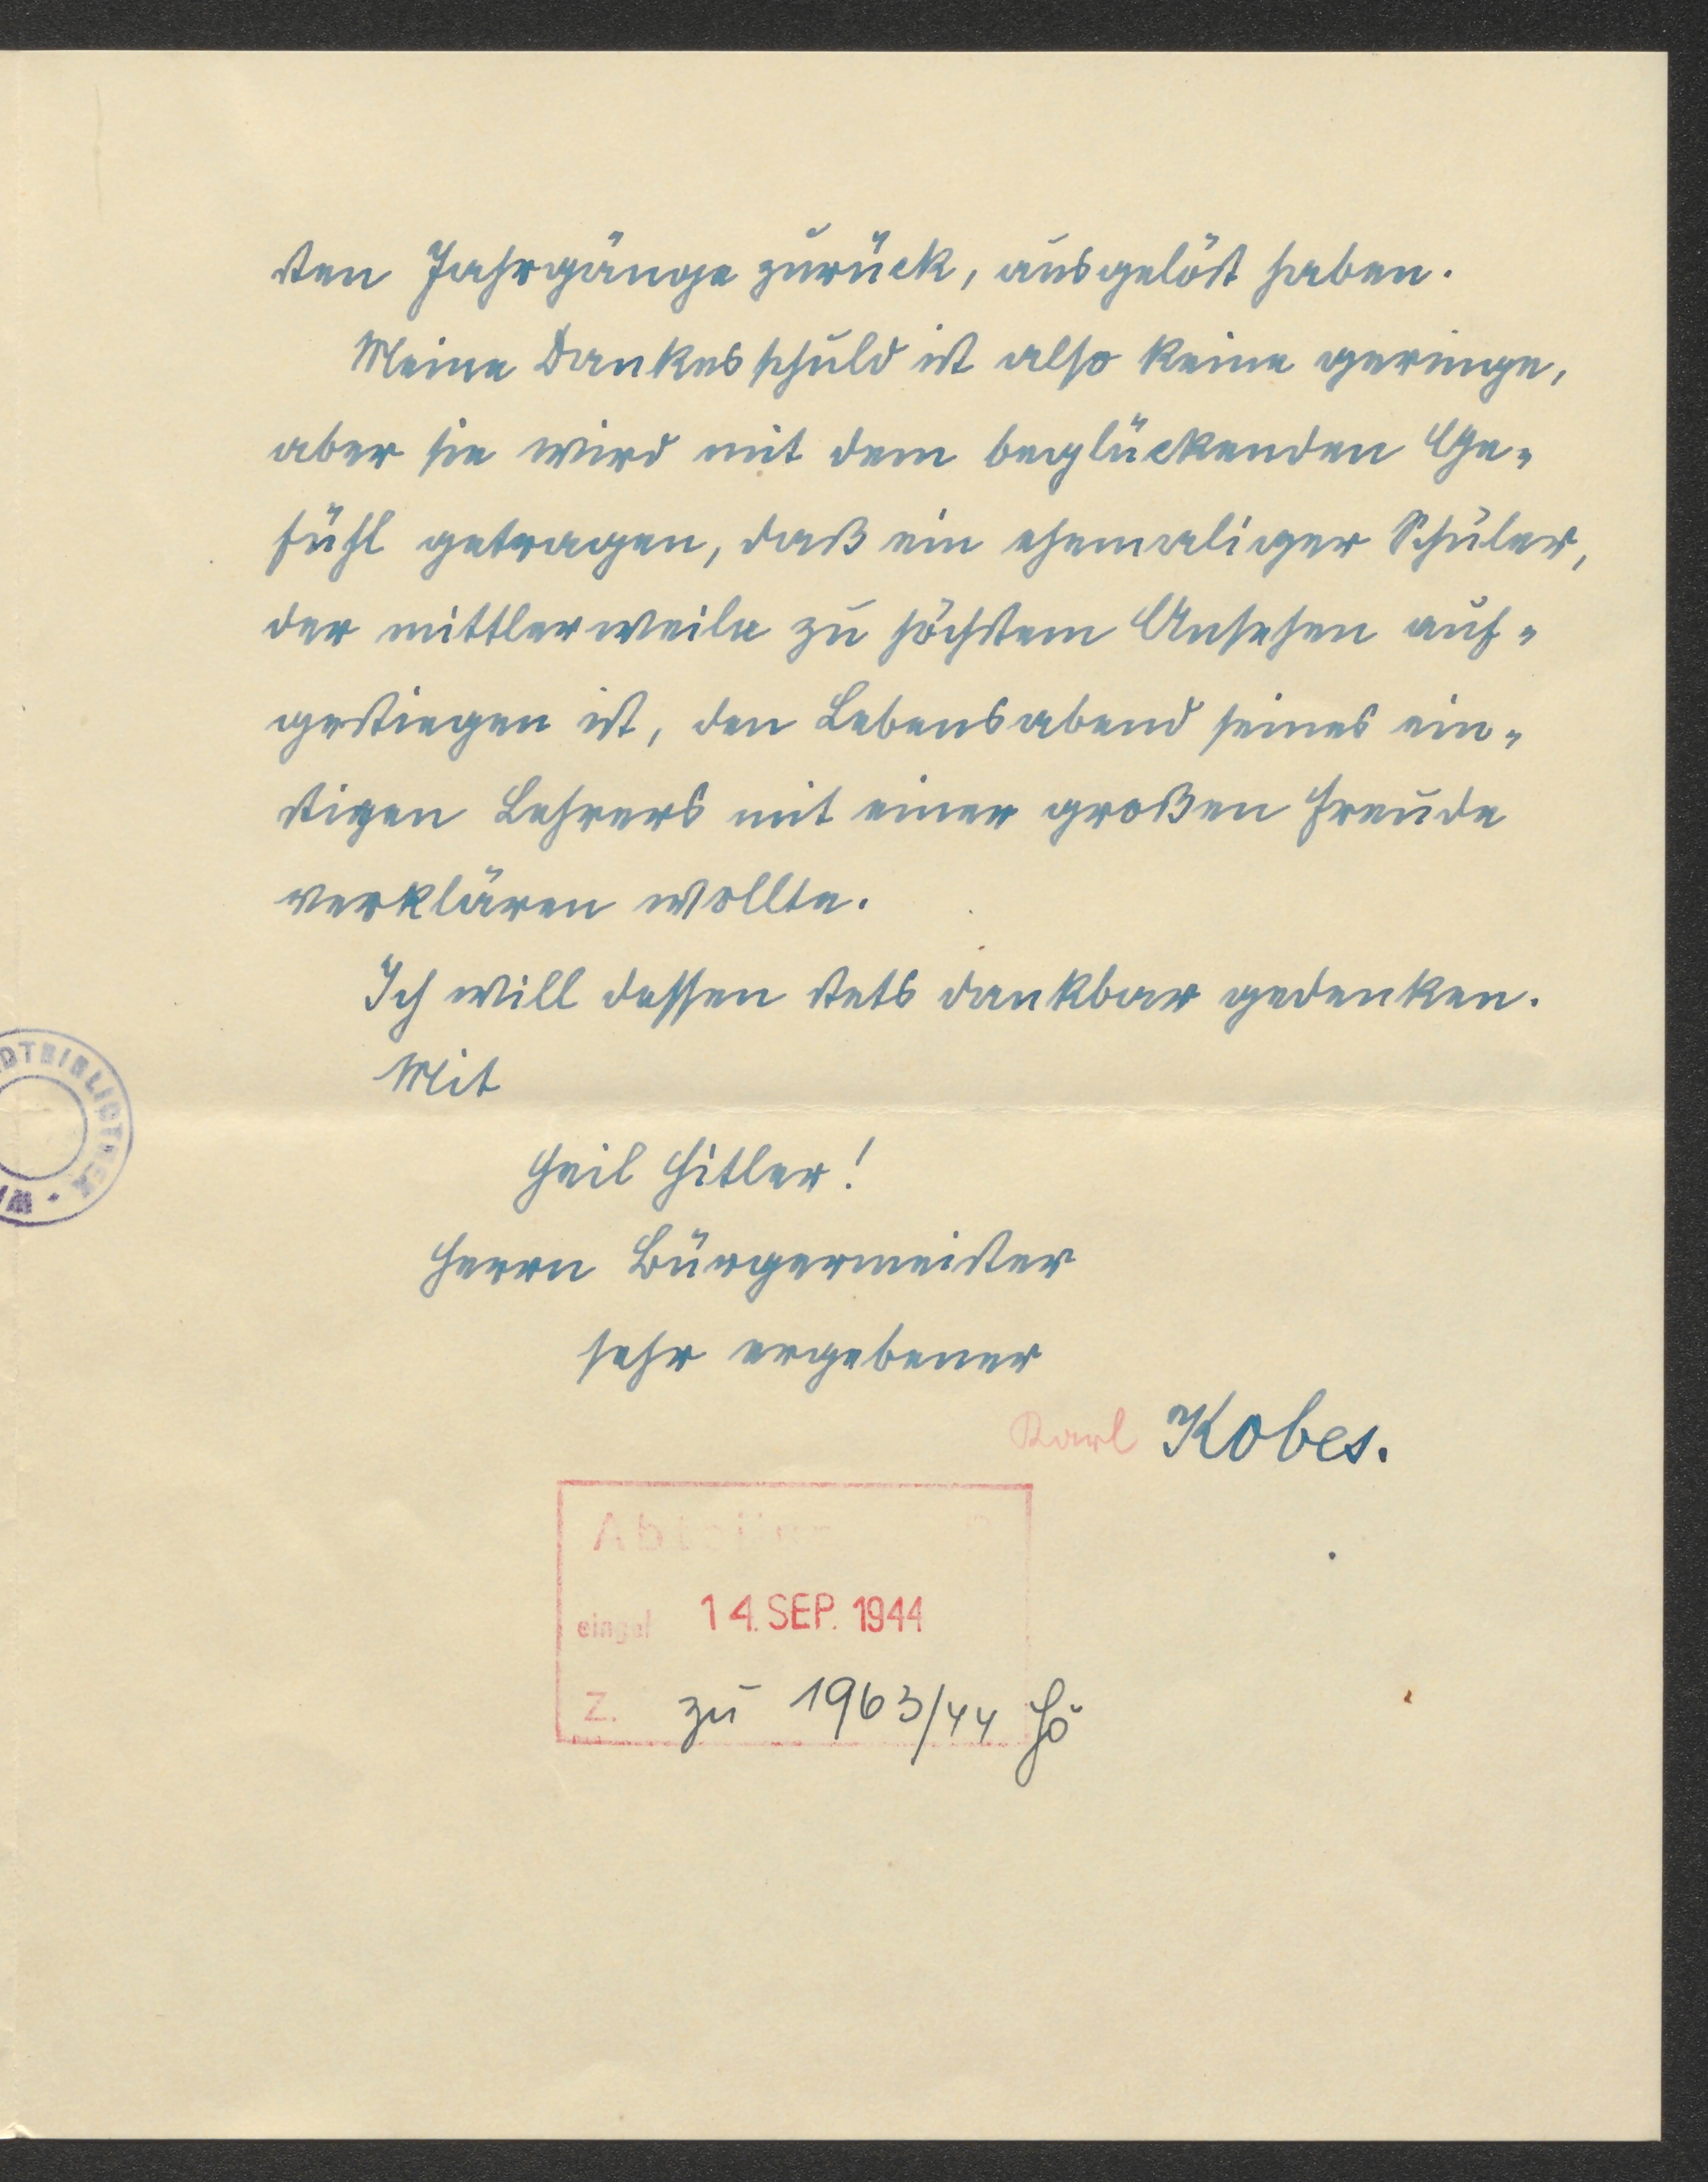 sten Jahrgänge zurück, ausgelöst haben.
Meine Dankesschuld ist also keine geringe,
aber sie wird mit dem beglückenden Ge-
fühl getragen, daß ein ehemaliger Schüler,
der mittlerweile zu höchstem Ansehen auf-
gestiegen ist, den Lebensabend seines ein-
stigen Lehrers mit einer großen Freude
verklären wollte.
Ich will dessen stets dankbar gedenken.
Mit
Heil Hitler!
Herrn Bürgermeister
sehr ergebener
Karl Kobes.
14. SEP. 1944
Z. zu 1963/44 Hö